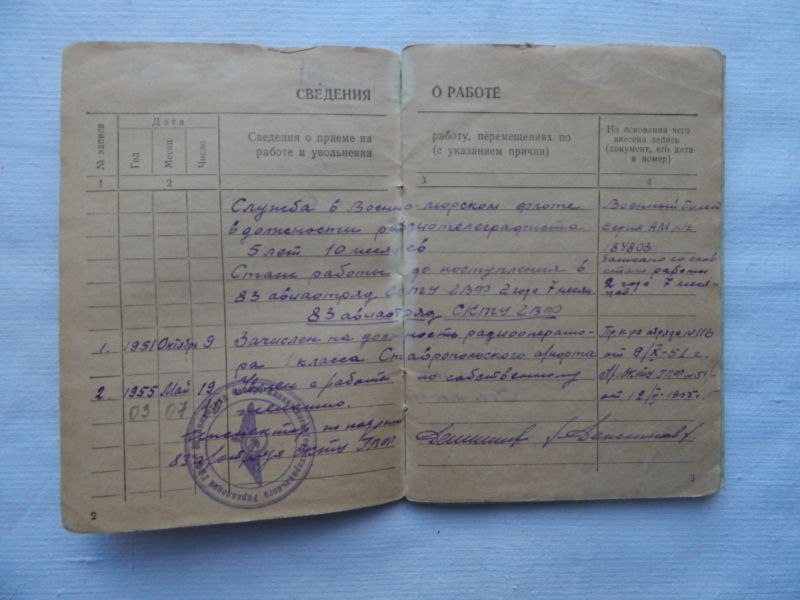 СВЕДЕНИЯ О РАБОТЕ
№ записи
Дата
Год
Месяц
Число
Сведения о приеме на работу, перемещениях по
работе и увольнении (с указанием причин)
На основании чего
внесена запись
(документ, его дата
и номер)
1 2 3 4
Служба в Военно-морском флоте
в должности радиотелеграфиста
5 лет 10 месяцев
Военный билет
серия
184803
Стаж работы до поступления в
83 авиаотряд СКТУ ГВФ 2 года 7 месяц.
Записано со слов
стаж работы
2 года 7 меся-
цев
83 авиаотряд СКТУ ГВФ
1. 1951 Октябрь 9 Зачислен на должность радиооперато-
ра класса Ставропольского аэропорта
Пр. отряда №116
от 9/X-51 г.
2. 1955 Май 19 с работы по собственному
желанию.
03 07
от 12/V-1955 г.
Инспектор по кадрам
83
2
3